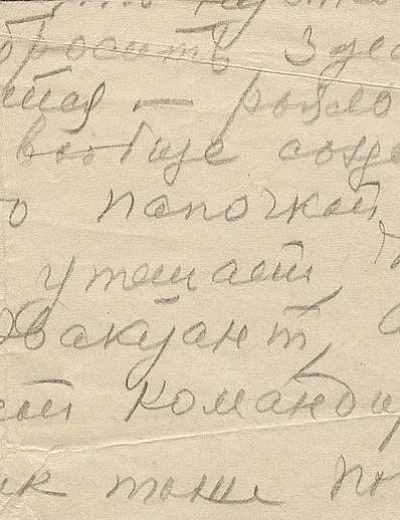 бросить здес
тая — рыло
вообще созде
о папочкой,
утешает
Эвакуант, а
ой команди
ик тоже по